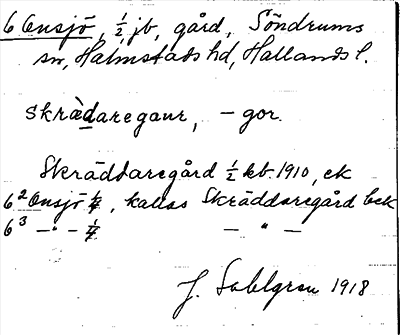 6 Onsjö, ½ jb, gård, Söndrums
sn, Halmstads hd, Hallands l.
skrädaregaur, - gor.
Skräddaregård ½ kb. 1910, ek
6² Onsjö ¼, kallas Skräddaregård bek
6³ -"- ¼ - " -
J. Sahlgren 1918